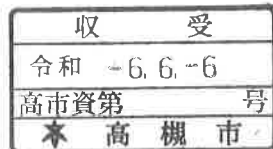 収受
令和 -6.6.-6
高市資第 号
高槻市